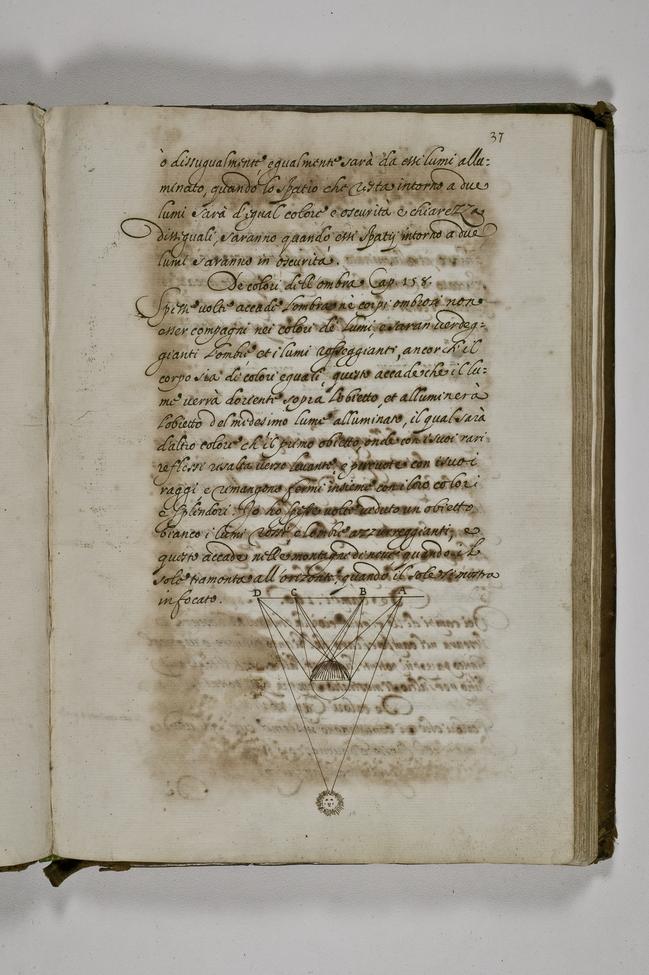 37
ò disugualmente, egualmente sarà da essi lumi allu:
minato, quando lo spatio che resta intorno a due
lumi sarà d'igual colore e oscurità e chiarezza
Dissiguali, saranno quando essi spatij intorno a due
lumi saranno in oscurità.
De colori dell'ombra Cap. 158.
Spesse volte accade l'ombra nè corpi ombrosi non
esser compagni nei colori de lumi, e saran verdeg:
gianti l'ombre et i lumi rosseggianti, ancorch'il
corpo sia di colori equali, questo accade che il lu:
me verrà d'oriente sopra l'obietto, et alluminerà
l'obietto del medesimo lume alluminato, il qual sarà
d'altro colore ch'il primo obietto, onde con i suoi rari
reflessi risalta verso levante, e percuote con i suoi
raggi e rimangono fermi insieme con i loro colori
e splendori. Io ho spesse volte veduto un obietto
bianco i lumi rossi e l'ombre azzurreggianti, e
questo accade nelle montagne di neve quando il
sole tramonta all'orizonte, quando il sole si mostra
infocato.
D C B A